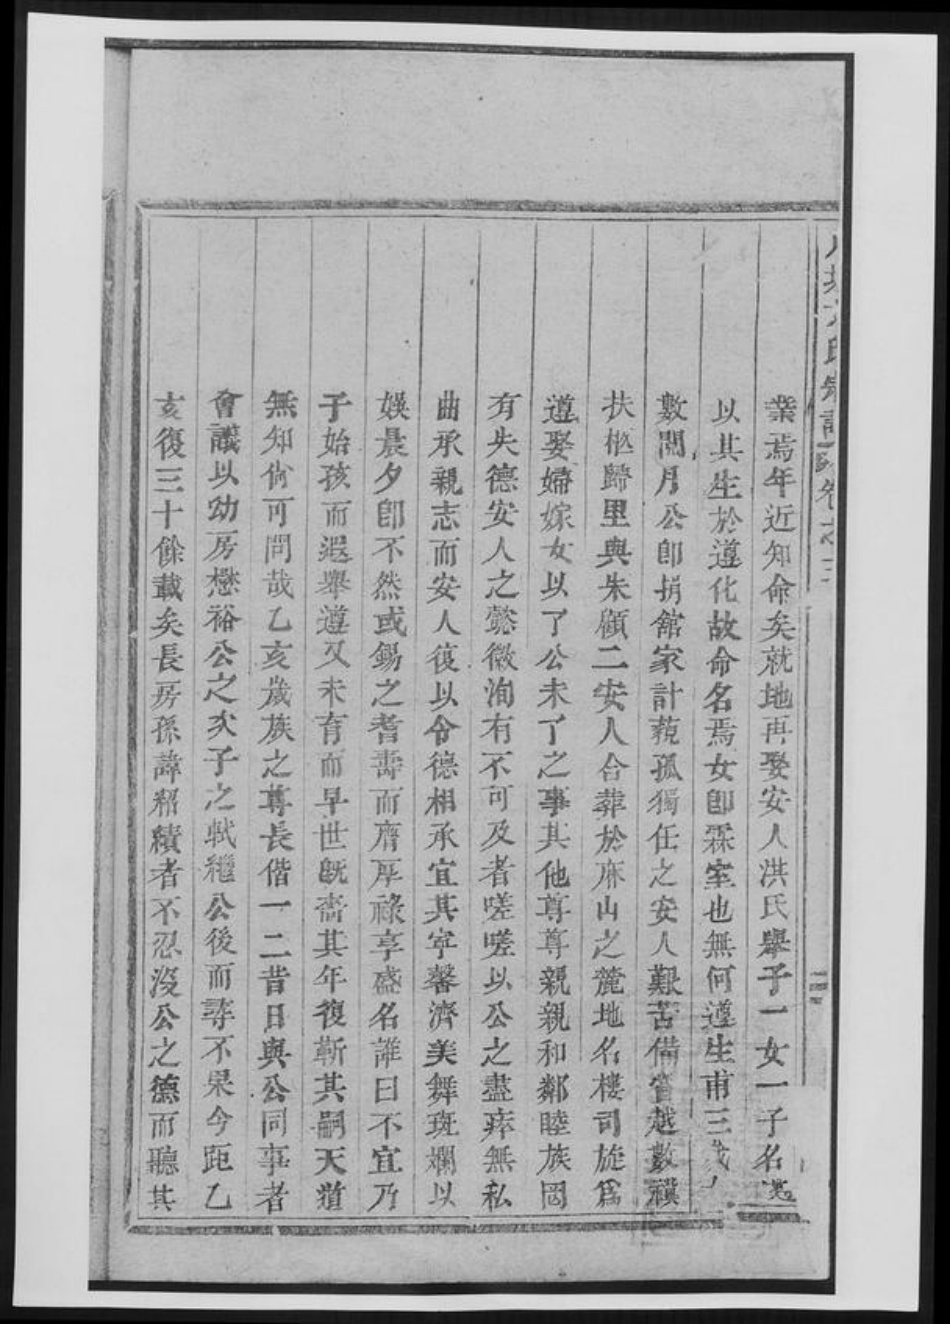 氏宗譜卷之三
業焉年近知命矣就地再娶安人洪氏舉子一女一子名遵
以其生於遵化故命名焉女卽霖室也無何遵生甫三歲
數閱月公卽捐館家計藐孤獨任之安人艱苦備嘗越數禩
扶柩歸里與朱顧二安人合葬於麻山之麓地名樓司旋爲
遵娶婦嫁女以了公未了之事其他尊尊親親和鄰睦族罔
有失德安人之懿徽洵有不可及者嗟嗟以公之盡瘁無私
曲承親志而安人復以令德相承宜其寧馨濟美舞斑斕以
娛晨夕卽不然或錫之耆壽而膺厚祿享盛名誰曰不宜乃
子始孩而遐舉遵又未育而早世旣嗇其年復靳其嗣天道
無知尙可問哉乙亥歲族之尊長偕一二昔日與公同事者
會議以幼房懋裕公之次子之軾繼公後而尋不果今距乙
亥復三十餘載矣長房孫諱紹績者不忍沒公之德而聽其